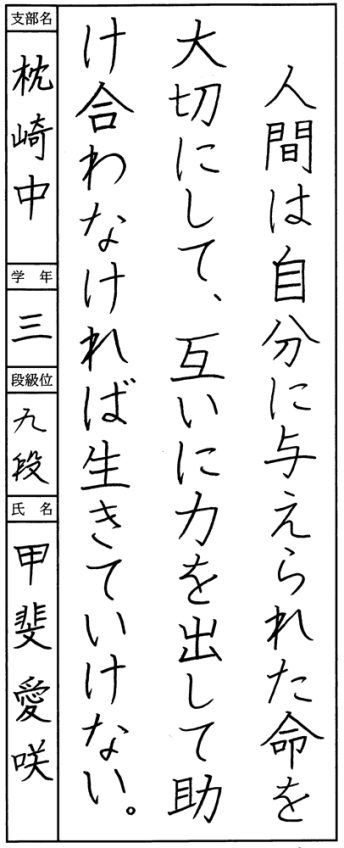 人間は自分に与えられた命を
大切にして、互いに力を出して助
け合わなければ生きていけない。
支部名
枕崎中
学年
三
段級位
九段
氏名
甲斐愛咲